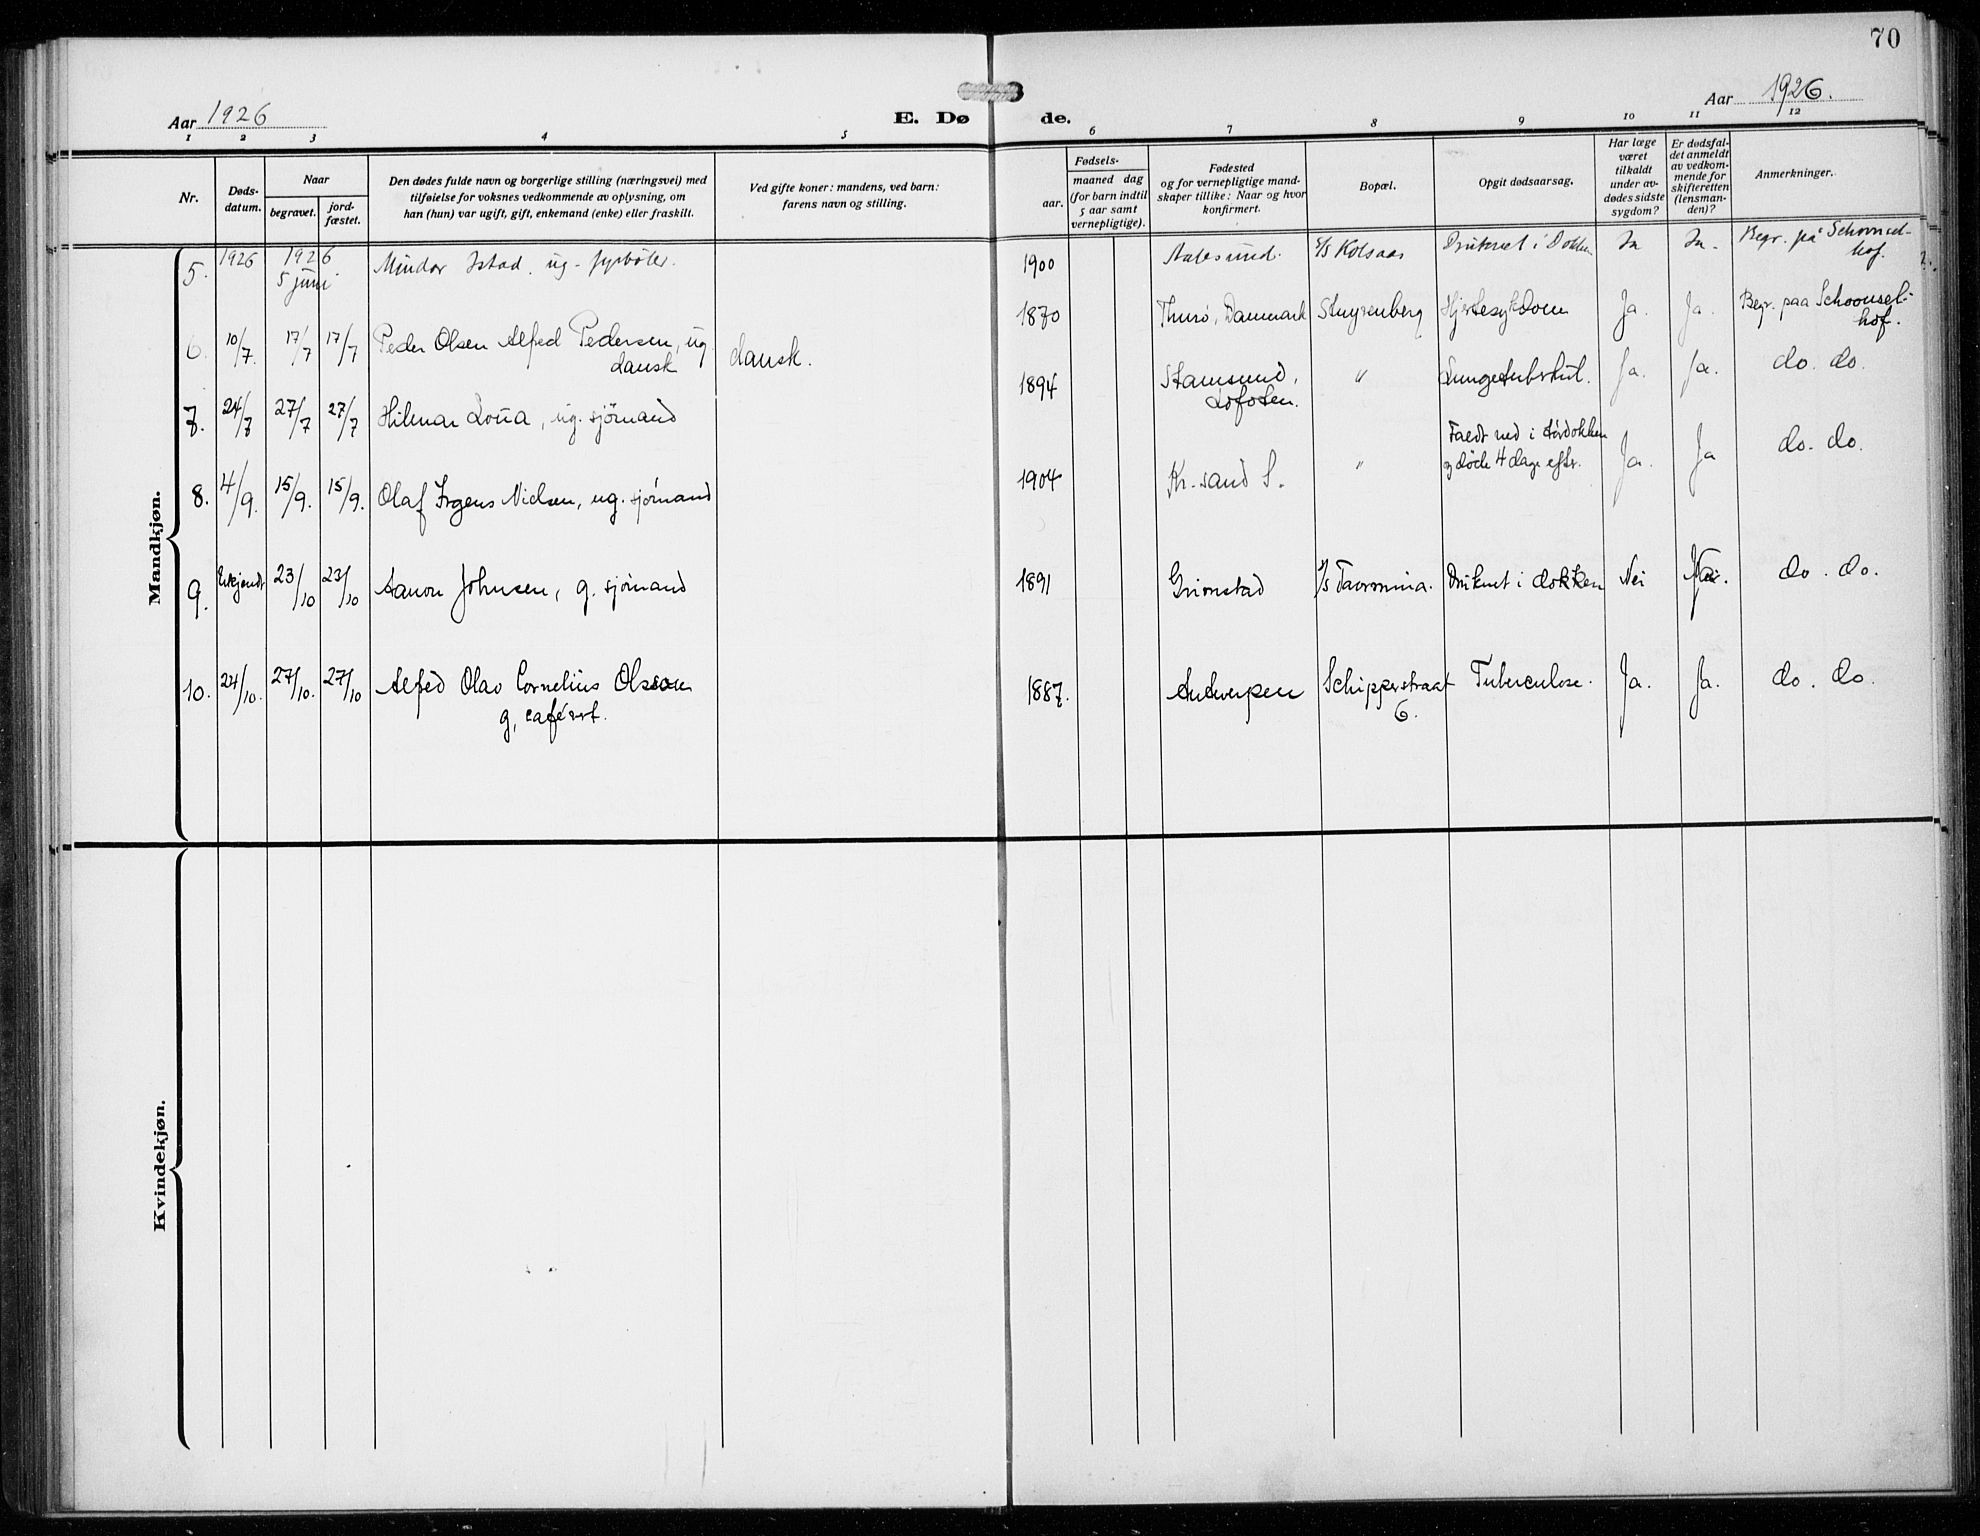 70
Aar 1926
E. Dø de.
Aar 1926.
1 2 3 4 5 6 7 8 9 10 11 12
Nr.
Døds-
datum.
Naar
begravet.
jord-
fæstet.
Den dødes fulde navn og borgerlige stilling (næringsvei) med
tilføielse for voksnes vedkommende av oplysning, om
han (hun) var ugift, gift, enkemand (enke) eller fraskilt.
Ved gifte koner: mandens, ved barn:
farens navn og stilling.
Fødsels-
aar.
maaned dag
(for barn indtil
5 aar samt
vernepligtige).
Fødested
og for vernepligtige mand-
skaper tillike: Naar og hvor
konfirmert.
Bopæl.
Opgit dødsaarsag.
Har læge
været
tilkaldt
under av-
dødes sidste
sygdom?
Er dødsfal-
det anmeldt
av vedkom-
mende for
skifteretten
(lensman-
den)?
Anmerkninger.
Mandkjøn.
5. 1926 1926 Mindor Istad. ug. fyrbøter. 1900 Aalesund. S/S Kolsaas Druknet i Dokken Ja Ja. Begr. på Schoonsel-
5 juni hof.
6. 10/7. 17/7 17/7 Peder Olsen Alfred Pedersen, ug. dansk. 1870 Thurø, Danmark Stuyvenberg Hjertesykdom Ja. Ja. Begr. paa Schoonsel-
dansk hof.
7. 24/7 27/7 27/7 Hilmar Loua, ug. sjømand 1894 Stamsund, " Lungetuberkul. Ja. Ja. do. do.
Lofoten.
8. 4/9. 15/9. 15/9. Olaf Irgens Nielsen, ug. sjømand 1904 Kr.sand S. " Faldt ned i tørdokken Ja. Ja do. do.
og døde 4 dage eftr.
9. Ukjendt 23/10 23/10 Aanon Johnsen, g. sjømand 1891 Grimstad S/S Taormina. Druknet i dokken Nei do. do.
10. 24/10. 27/10. 27/10 Alfred Olav Cornelius Olsson 1887. Antwerpen Schipperstraat Tuberculose. Ja. Ja. do. do.
g, cafévert. 6.
Kvindekjøn.